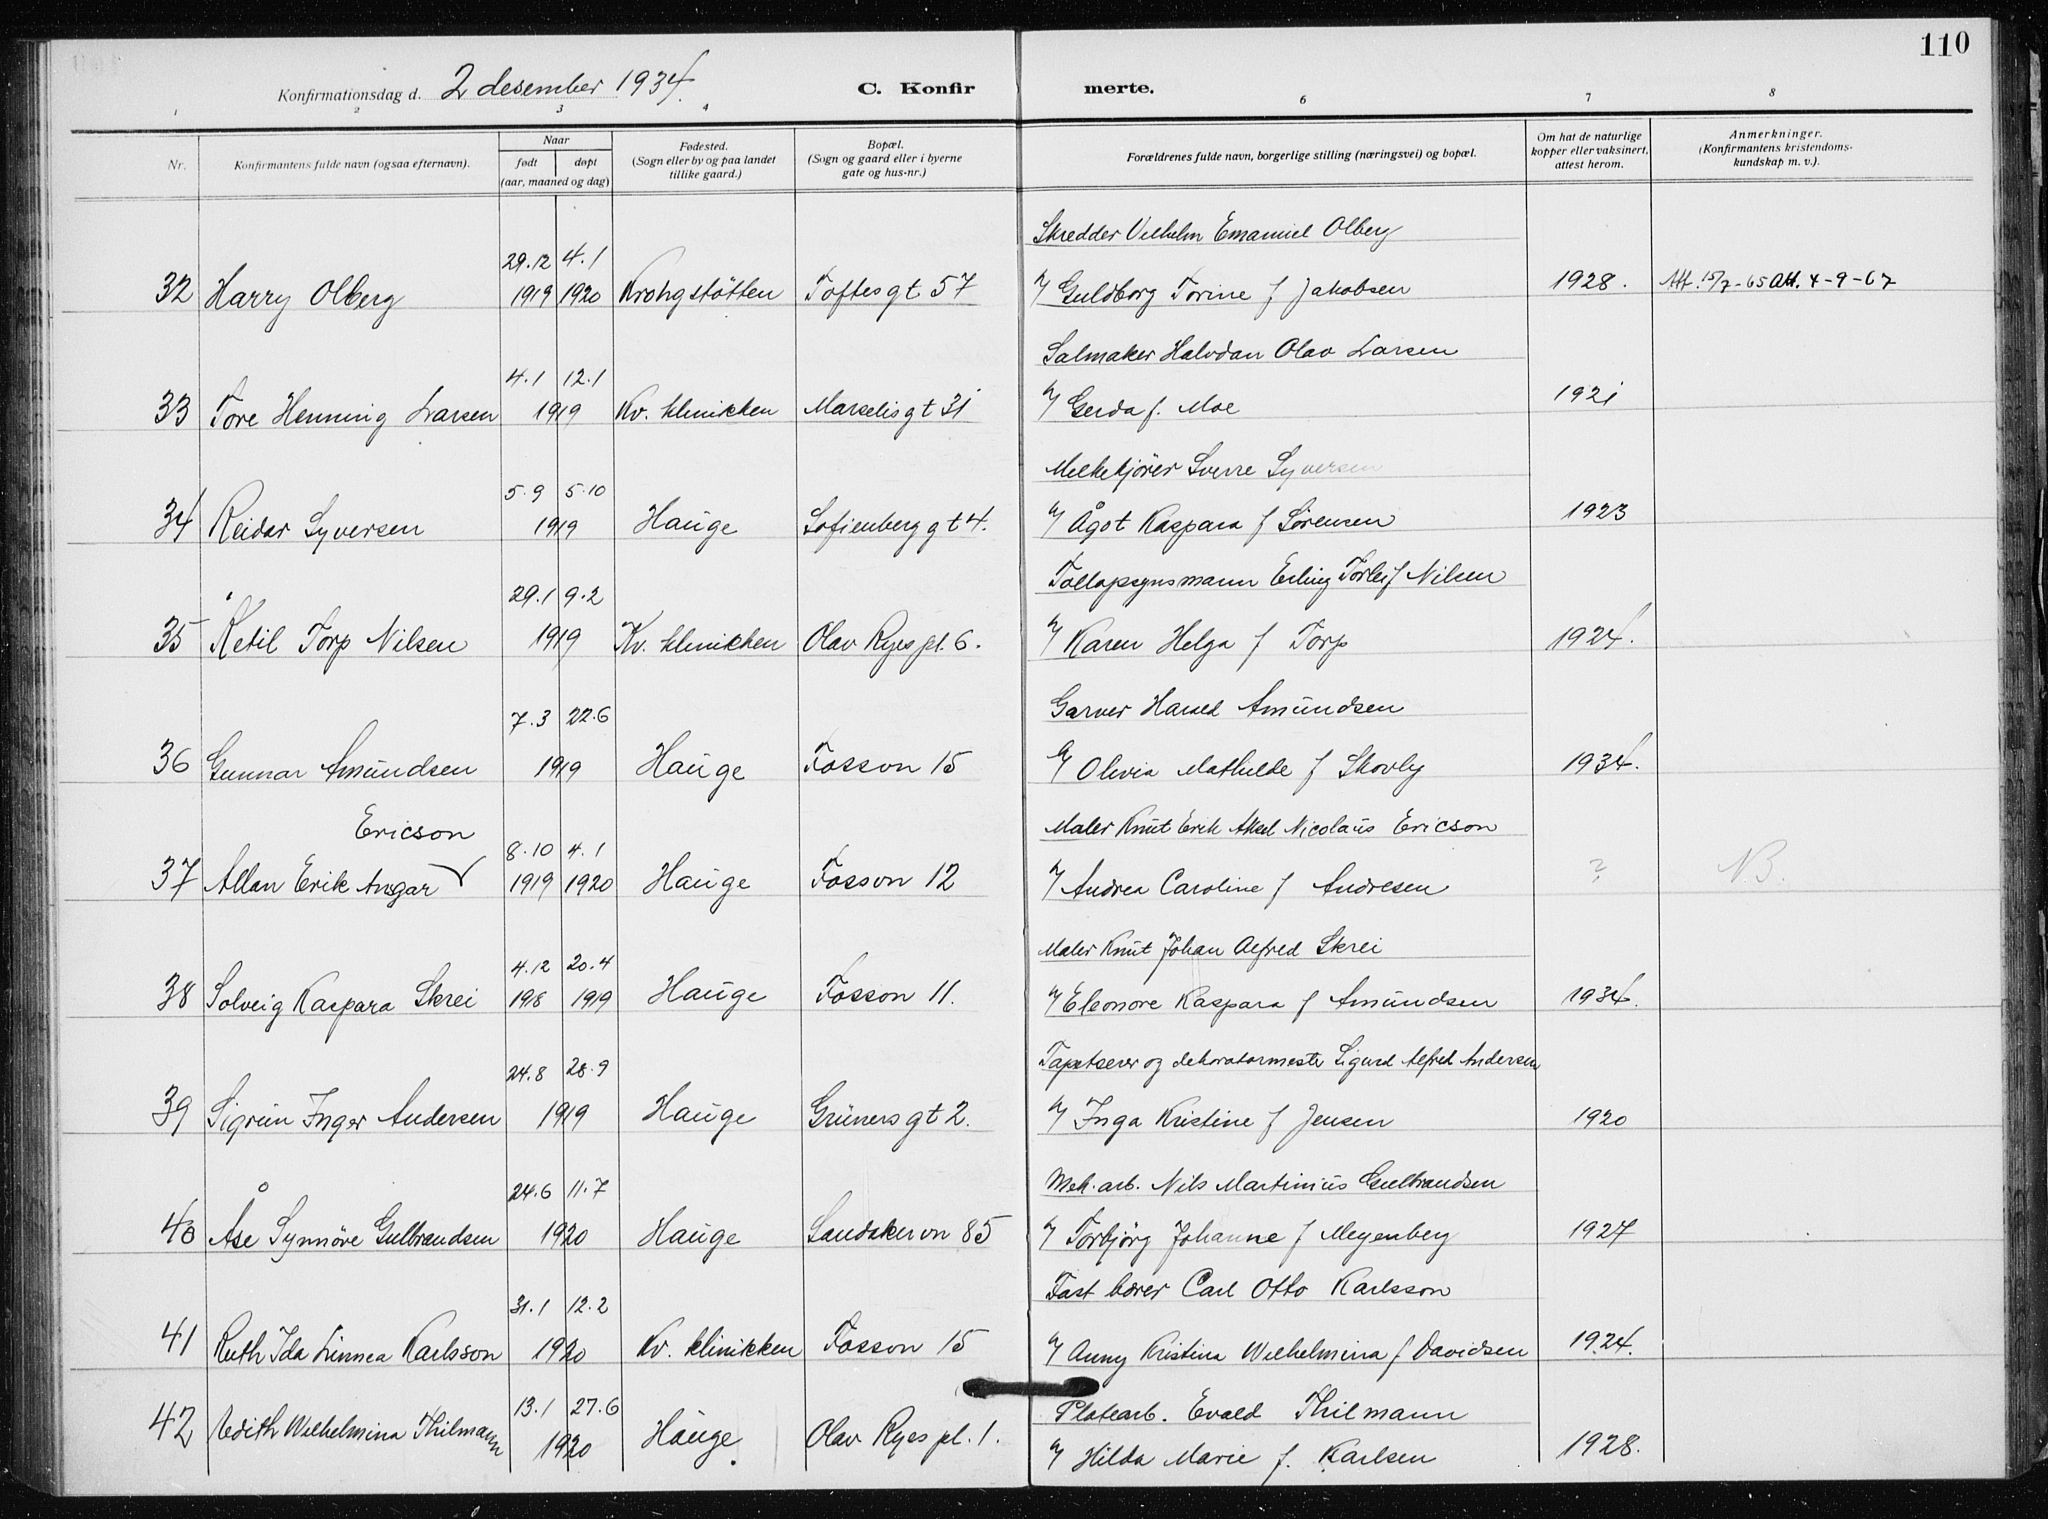 110
Konfirmationsdag d. 2 desember 1934. C. Konfirmerte.
1 2 3 4 6 7 8
Nr.
Konfirmantens fulde navn (ogsaa efternavn).
Naar
født døpt
(aar, maaned og dag)
Fødested.
(Sogn eller by og paa landet
tillike gaard.)
Bopæl.
(Sogn og gaard eller i byerne
gate og hus-nr.)
Forældrenes fulde navn, borgerlige stilling (næringsvei) og bopæl.
Om hat de naturlige
kopper eller vaksinert,
attest herom.
Anmerkninger.
(Konfirmantens kristendoms-
kundskap m. v.).
Skredder Vilhelm Emanuel Olberg
29.12 4.1
32 Harry Olberg 1919 1920 Krohgstøtten Toftesgt 57 Guldborg Torine f Jakobsen 1928. Att. 15/7-65 Att. 4-9-67
Salmaker Halvdan Olav Larsen
4.1 12.1
33 Tore Henning Larsen 1919 Kv. klinikken Marselisgt 31 Gerda f. Moe 1921
Melkekjører Sverre Syversen
5.9 5.10
34 Reidar Syversen 1919 Hauge Sofienberggt 4. Ågot Kaspara f Sørensen 1923
Tollopsynsmann Erling Torleif Nilsen
29.1 9.2
35 Ketil Torp Nilsen 1919 Kv. klinikken Olav Ryes pl. 6. Karen Helga f Torp 1924.
Garver Harald Amundsen
7.3 22.6
36 Gunnar Amundsen 1919 Hauge Fossvn 15 Olivia Mathilde f Skovly 1934.
Ericson Maler Knut Erik Aksel Nicolaus Ericson
8.10 4.1
37 Allan Erik Ansgar √ 1919 1920 Hauge Fossvn 12 Andrea Caroline f Andresen ? N.B.
Maler Knut Johan Alfred Skrei
4.12 20.4
38 Solveig Kaspara Skrei 1918 1919 Hauge Fossvn 11. Eleonore Kaspara f Amundsen 1934.
Tapetserer og dekoratørmester Sigurd Alfred Andersen
24.8 28.9
39 Sigrun Inger Andersen 1919 Hauge Grünersgt 2. Inga Kristine f Jensen 1920
Mek. arb. Nils Martinius Gulbrandsen
24.6 11.7
40 Åse Synnöve Gulbrandsen 1920 Hauge Sandakervn 85 Torbjørg Johanne f Meyenberg 1927
Fast bærer Carl Otto Karlsson
31.1 12.2
41 Ruth Ida Linnea Karlsson 1920 Kv. klinikken Fossvn 15 Anny Kristina Wilhelmina f Davidsen 1924.
13.1 27.6 Platearb. Evald Thilmann
42 Edith Wilhelmina Thilmann 1920 Hauge Olav Ryes pl. 1. Hilda Marie f. Karlsen 1928.